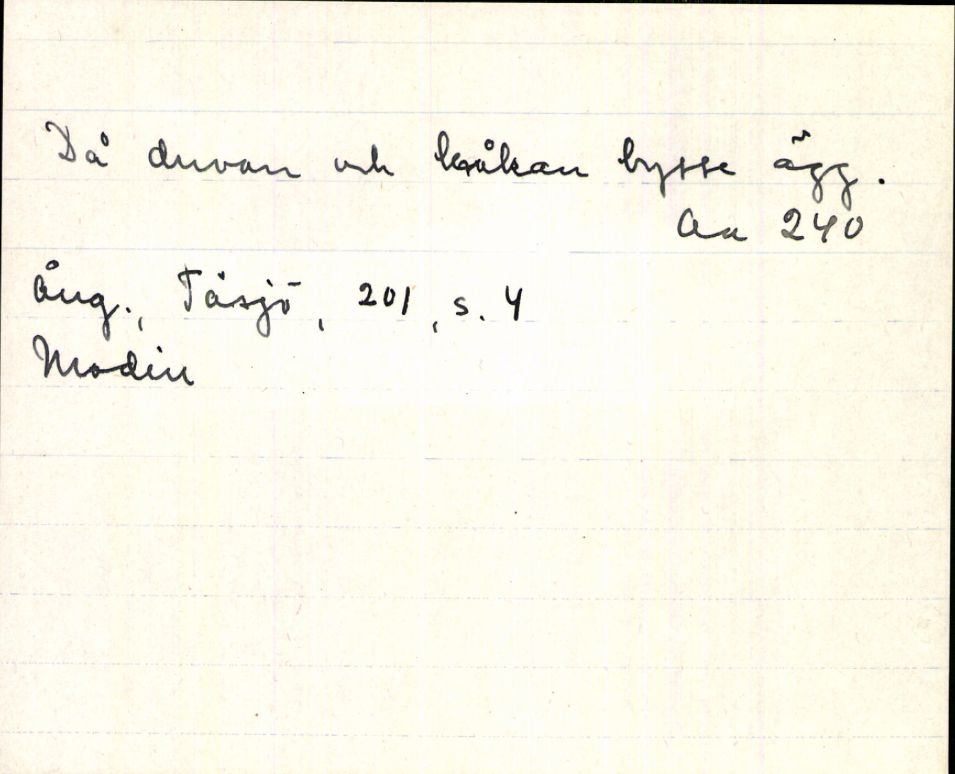 Då duvan och kråkan bytte ägg.
Aa 240
Ång., Tåsjö, 201, s. 4
Modin